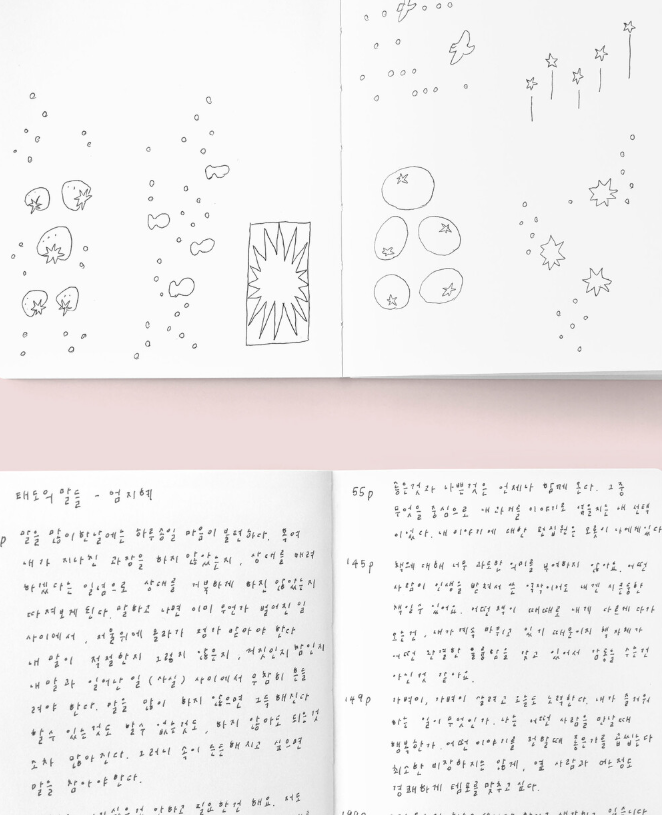 태도의 말들 - 엄지혜
p 말을 많이 한 날에는 하루종일 마음이 불편하다. 혹여
내가 지나친 과장을 하지 않았는지, 상대를 배려
하겠다는 일념으로 상대를 거북하게 하진 않았는지
따져보게 된다. 말하고 나면 이미 우연가 벌어진 일
사이에서, 저울위에 올라가 정가 알아야 한다
내 말이 적절한지 그렇지 않은지, 거짓인지 참인지
내 말과 일어난 일 (사실) 사이에서 우참히 흔들
려야 한다. 말을 많이 하지 않으면 그득해진다
할수 있는것도 할수 없는것도, 하지 않아도 되는것
조차 많아진다. 그러니 속이 든든해지고 싶으면
말을 참아야 한다.
싶은건 안하고 필요한건 해요. 저도
55p 좋은것과 나쁜것은 언제나 함께 온다. 그중
무엇을 중심으로 내 과거를 이야기로 엮을지는 내 선택
이었다. 내 이야기에 대한 편집권은 오롯이 나에게 있다
145p 책에 대해 너무 과도한 의미를 부여하지 않아요. 어떤
사람이 인생을 받쳐서 쓴 역작이어도 내겐 시큰둥한
책일수 있어요. 어떤 책이 때때로 내게 다르게 다가
오는건, 내가 계속 바뀌고 있기 때문이지 책 자체가
어떤 완결한 훌륭함을 갖고 있어서 감동을 주는건
아닌것 같아요.
149p 가볍이, 가볍이 살려고 오늘도 노력한다. 내가 즐거워
하는 일이 무엇인가. 나는 어떤 사람을 만날때
행복한가. 어떤 이야기를 전할때 좋은가를 곱씹는다
최소한 비장하지는 않게, 옆 사람과 어느정도
경쾌하게 템포를 맞추고 싶다.